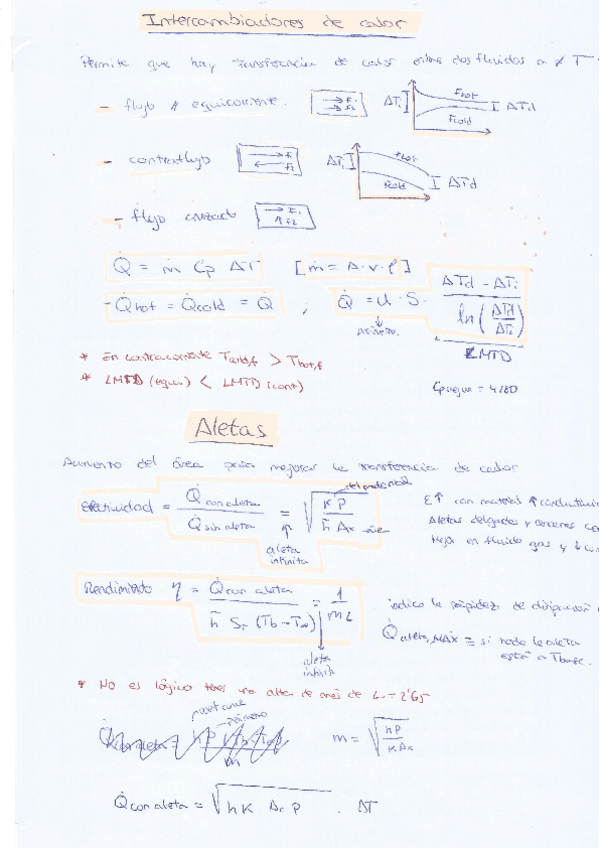 Intercambiadores de calor
Permite que hay transferencia de calor entre dos fluidos a ≠ T
- flujo // equicorriente.
F1
F2
ΔTi
Fhot
Fcold
ΔTd
- contraflujo
F1
F2
ΔTi
Fhot
Fcold
ΔTd
- flujo cruzado
F1
F2
Q̇ = ṁ Cp ΔT [ṁ = A·v·ρ]
-Q̇hot = Q̇cold = Q̇ ; Q̇ = U · S · (ΔTd - ΔTi) / ln(ΔTd/ΔTi)
LMTD
* En contracorriente Tcold,f > Thot,f
* LMTD (equi.) < LMTD (cont)
Cp agua = 4180
Aletas
Aumento del área para mejorar la transferencia de calor
Efectividad = Q̇ con aleta / Q̇ sin aleta = √(K P / h̄ Ac)
aleta
infinita
ε↑ con material ↑
Aletas delgadas y cercanas
en fluido gas y ↓
Rendimiento η = Q̇ con aleta / h̄ Sr (Tb - T∞) = 1 / mL
aleta
infinita
indica la rapidez de disipación
Q̇ aleta, MAX = si toda la aleta
está a Tbase.
* No es lógico más de L = 2'65
perímetro
m = √(hP / K Ac)
Q̇ con aleta = √(h K Ac P) · ΔT